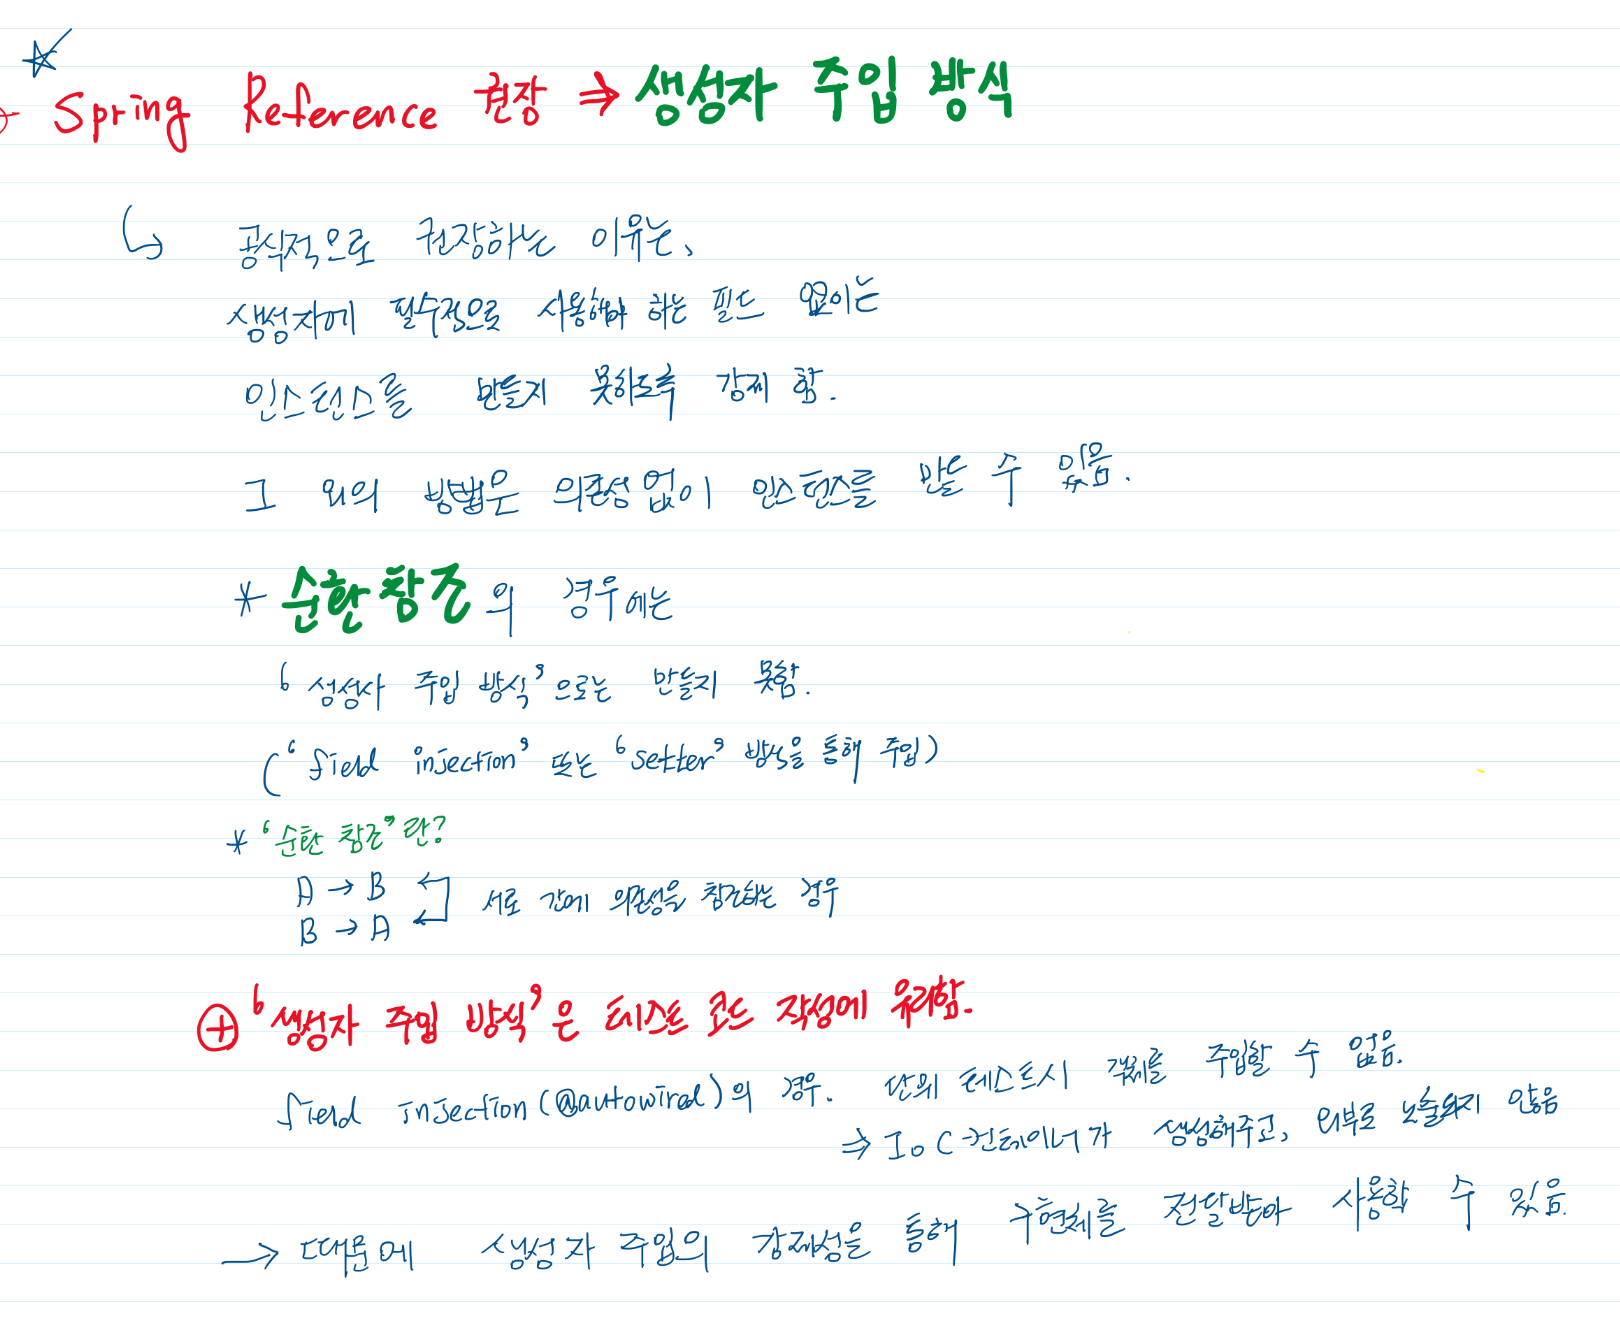 Spring Reference 권장 ⇒ 생성자 주입 방식
↳ 공식적으로 권장하는 이유는,
생성자에 필수적으로 사용해야 하는 필드 없이는
인스턴스를 만들지 못하도록 강제 함.
그 외의 방법은 의존성 없이 인스턴스를 만들 수 있음.
* 순환참조의 경우에는
'생성자 주입 방식'으로는 만들지 못함.
('field injection' 또는 'setter' 방식을 통해 주입)
* '순환 참조'란?
A → B
B → A 서로 간에 의존성을 참조하는 경우
⊕ '생성자 주입 방식'은 테스트 코드 작성에 유리함.
field injection(@autowired)의 경우. 단위 테스트시 객체를 주입할 수 없음.
⇒ IoC 컨테이너가 생성해주고, 외부로 노출되지 않음
→ 때문에 생성자 주입의 강제성을 통해 구현체를 전달받아 사용할 수 있음.